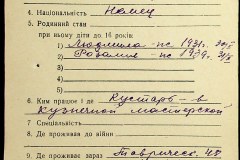 4. Національність Немец
5. Родинний стан
при ньому діти до 16 років
1) Людмила - нс 1931.
2) Розалия - нс 1939.
3)
4)
6. Ким працює і де Кустарь - в
Кузнечной мастерской
7. Спеціяльність
8. Де проживав до війни
9. Де проживає зараз Таврическ. 48